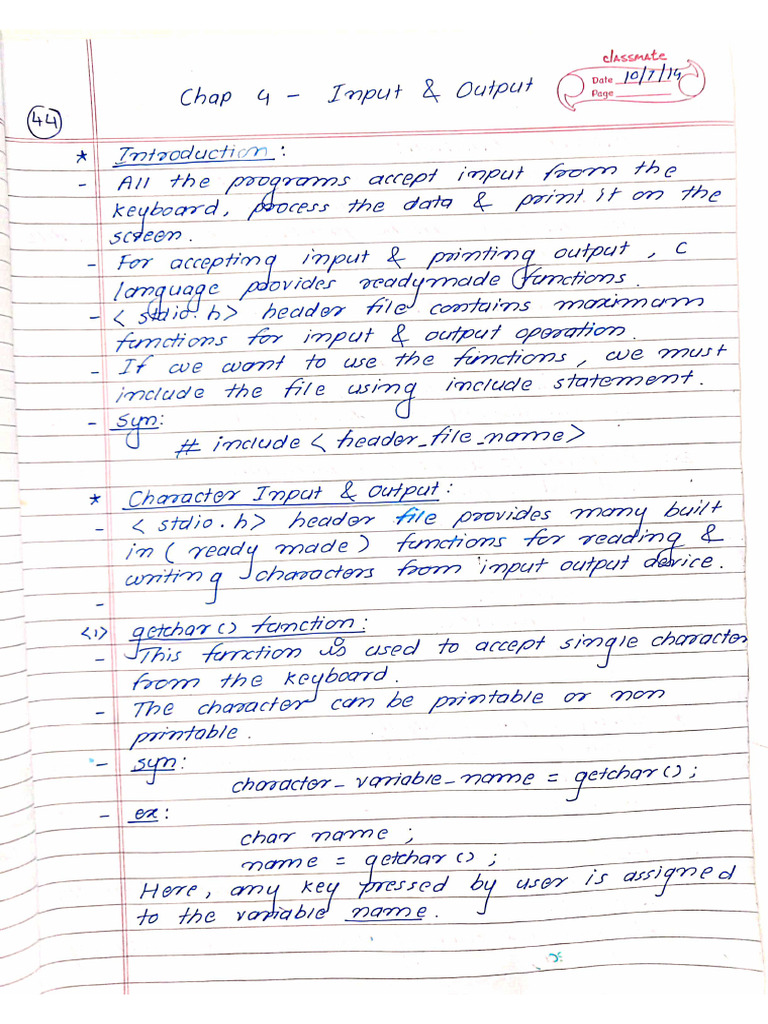 classmate
Date 10/7/19
Page
Chap 4 - Input & Output
44
* Introduction :
- All the programs accept input from the
keyboard, process the data & print it on the
screen.
- For accepting input & printing output, C
language provides readymade functions.
- < stdio.h> header file contains maximum
functions for input & output operation.
- If we want to use the functions, we must
include the file using include statement.
- Syn:
# include < header_file_name>
* Character Input & Output :
- < stdio.h> header file provides many built
in ( ready made ) functions for reading &
writing characters from input output device.
-
<1> getchar() function :
- This function is used to accept single character
from the keyboard.
- The character can be printable or non
printable.
- syn:
character_variable_name = getchar();
- ex:
char name ;
name = getchar();
Here, any key pressed by user is assigned
to the variable name.